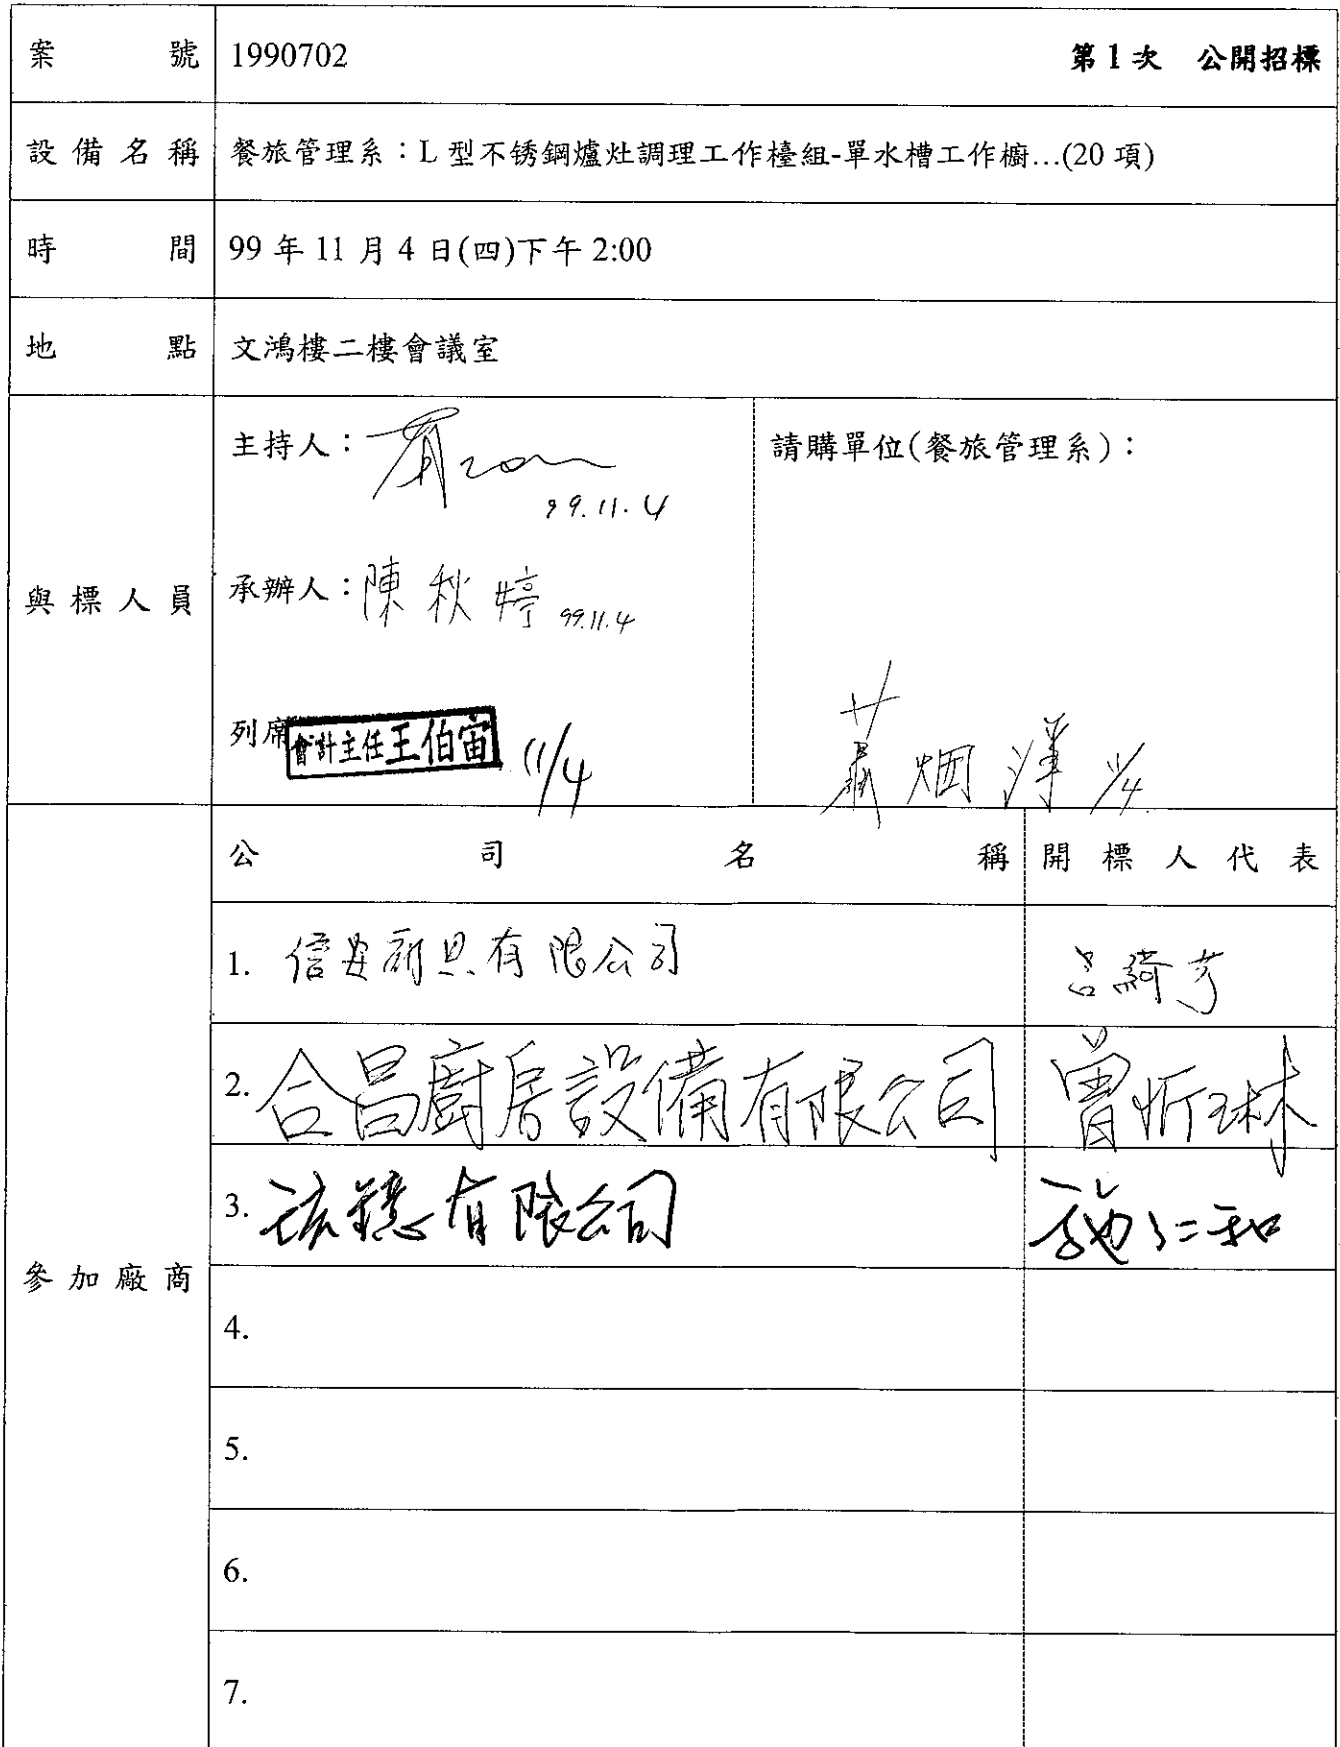 案號 1990702 第1次 公開招標
設備名稱 餐旅管理系：L 型不锈鋼爐灶調理工作檯組-單水槽工作櫥…(20 項)
時間 99 年 11 月 4 日(四)下午 2:00
地點 文鴻樓二樓會議室
與標人員
主持人： 99.11.4
承辦人：陳秋婷 99.11.4
列席 會計主任王伯宙 11/4
請購單位(餐旅管理系)：
蕭烟淳 11/4
參加廠商
公司名稱 開標人代表
1. 信 有限公司 呂綺芳
2. 合昌廚房設備有限公司 曾忻琳
3. 鐿有限公司 施仁和
4.
5.
6.
7.